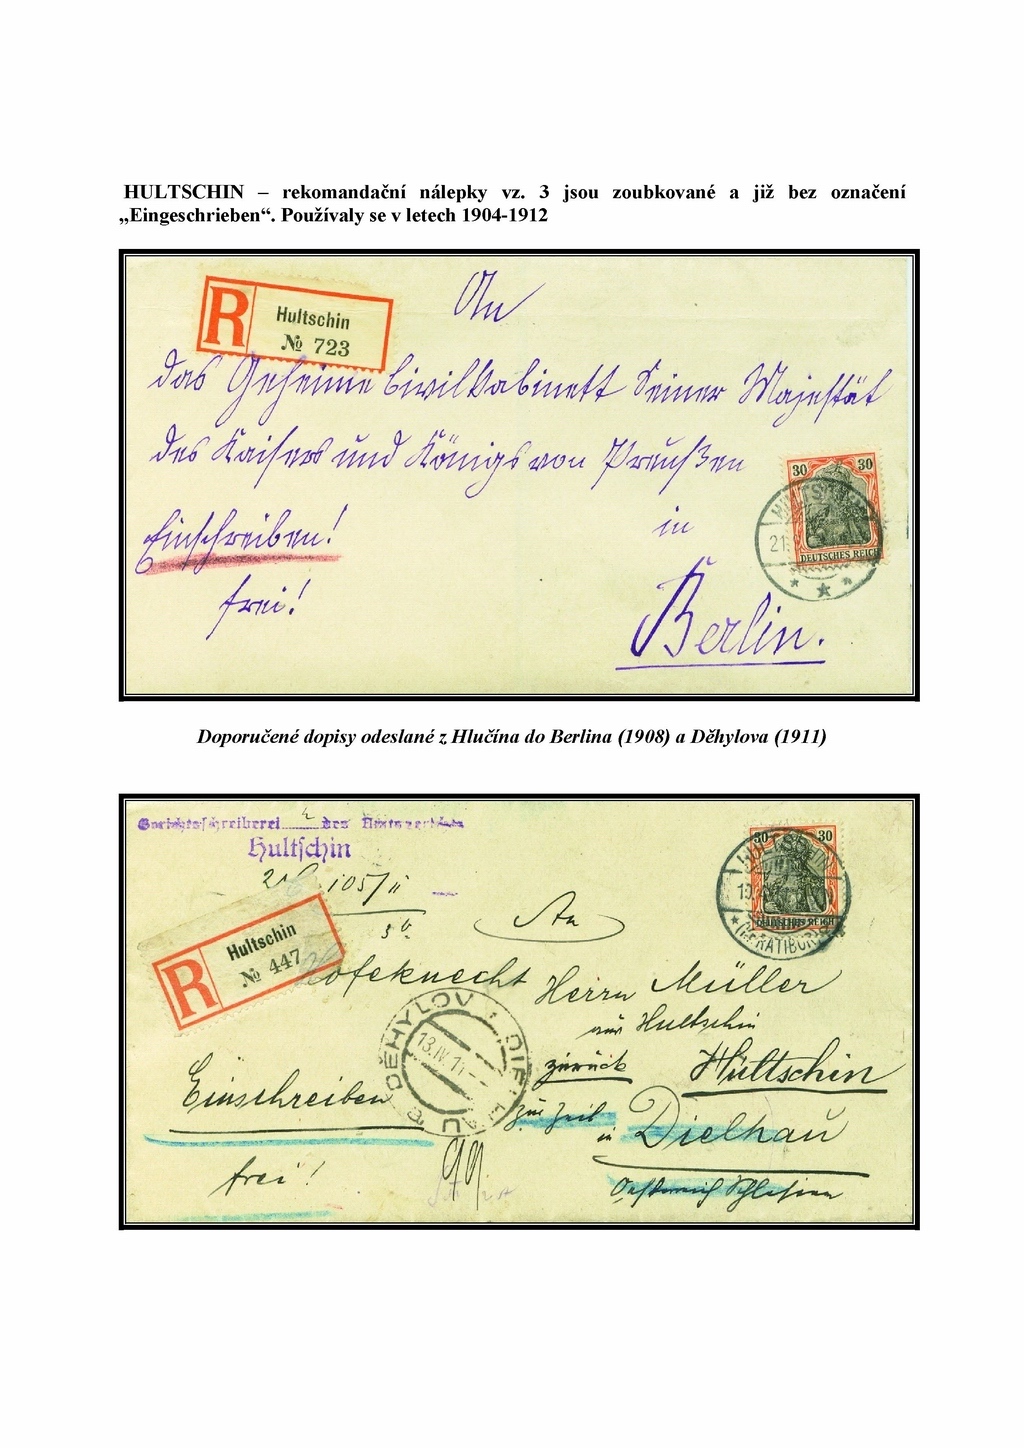 HULTSCHIN – rekomandační nálepky vz. 3 jsou zoubkované a již bez označení
„Eingeschrieben“. Používaly se v letech 1904-1912
R
Hultschin
№ 723
An
das Geheime Civilkabinett Seiner Majestät
des Kaisers und Königs von Preußen
Einschreiben!
in
frei!
Berlin.
30 30
DEUTSCHES REICH
21.
Doporučené dopisy odeslané z Hlučína do Berlina (1908) a Děhylova (1911)
Gerichtsschreiberei des Amtsgerichts
Hultschin
105/11
30 30
DEUTSCHES REICH
(BZ. RATIBOR)
R
Hultschin
№ 447
An
Hofeknecht Herrn Müller
aus Hultschin
zurück Hultschin
DĚHYLOV
13.IV.11
Einschreiben
zur Zeit
in Dielhau
frei!
99
Oestreich Schlesien